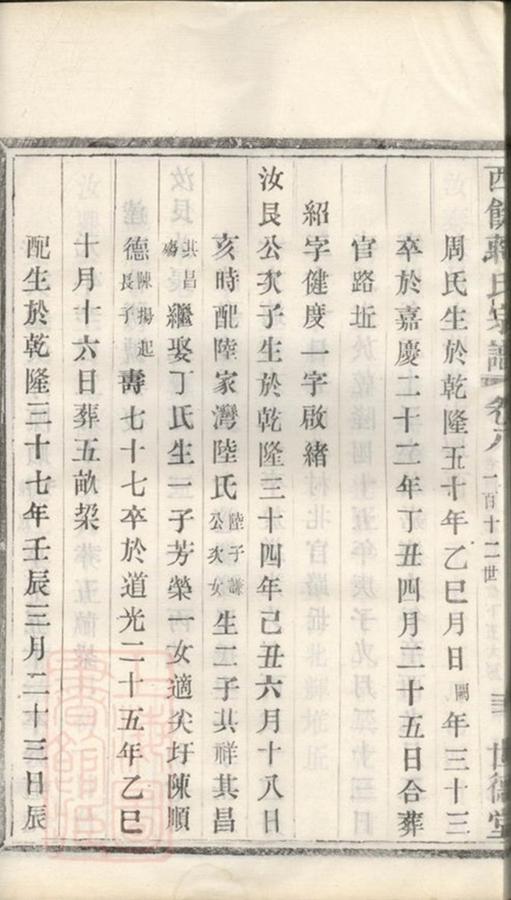 蔣氏宗譜 卷八 一百十二世 世德堂
周氏生於乾隆五十年乙巳月日闕年三十三
卒於嘉慶二十二年丁丑四月二十五日合葬
官路坵
紹字健度一字啟緒
汝良公次子生於乾隆三十四年己丑六月十八日
亥時配陸家灣陸氏陸子謙公次女生二子其祥其昌
其昌殤繼娶丁氏生一子芳榮一女適尖圩陳順
德陳揚起長子壽七十七卒於道光二十五年乙巳
十月十六日葬五畝
配生於乾隆三十七年壬辰三月二十三日辰